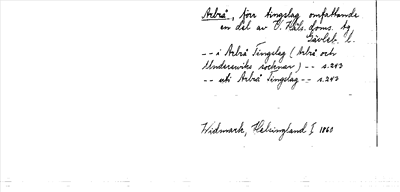 Arbrå, förr tingslag omfattande
en del av V. Häls. doms. tg.
Gävleb. l.
-- i Arbrå Tingslag (Arbrå och
Undersviks socknar) -- s. 243
-- uti Arbrå Tingslag -- s. 243
Widmark, Helsingland I 1860